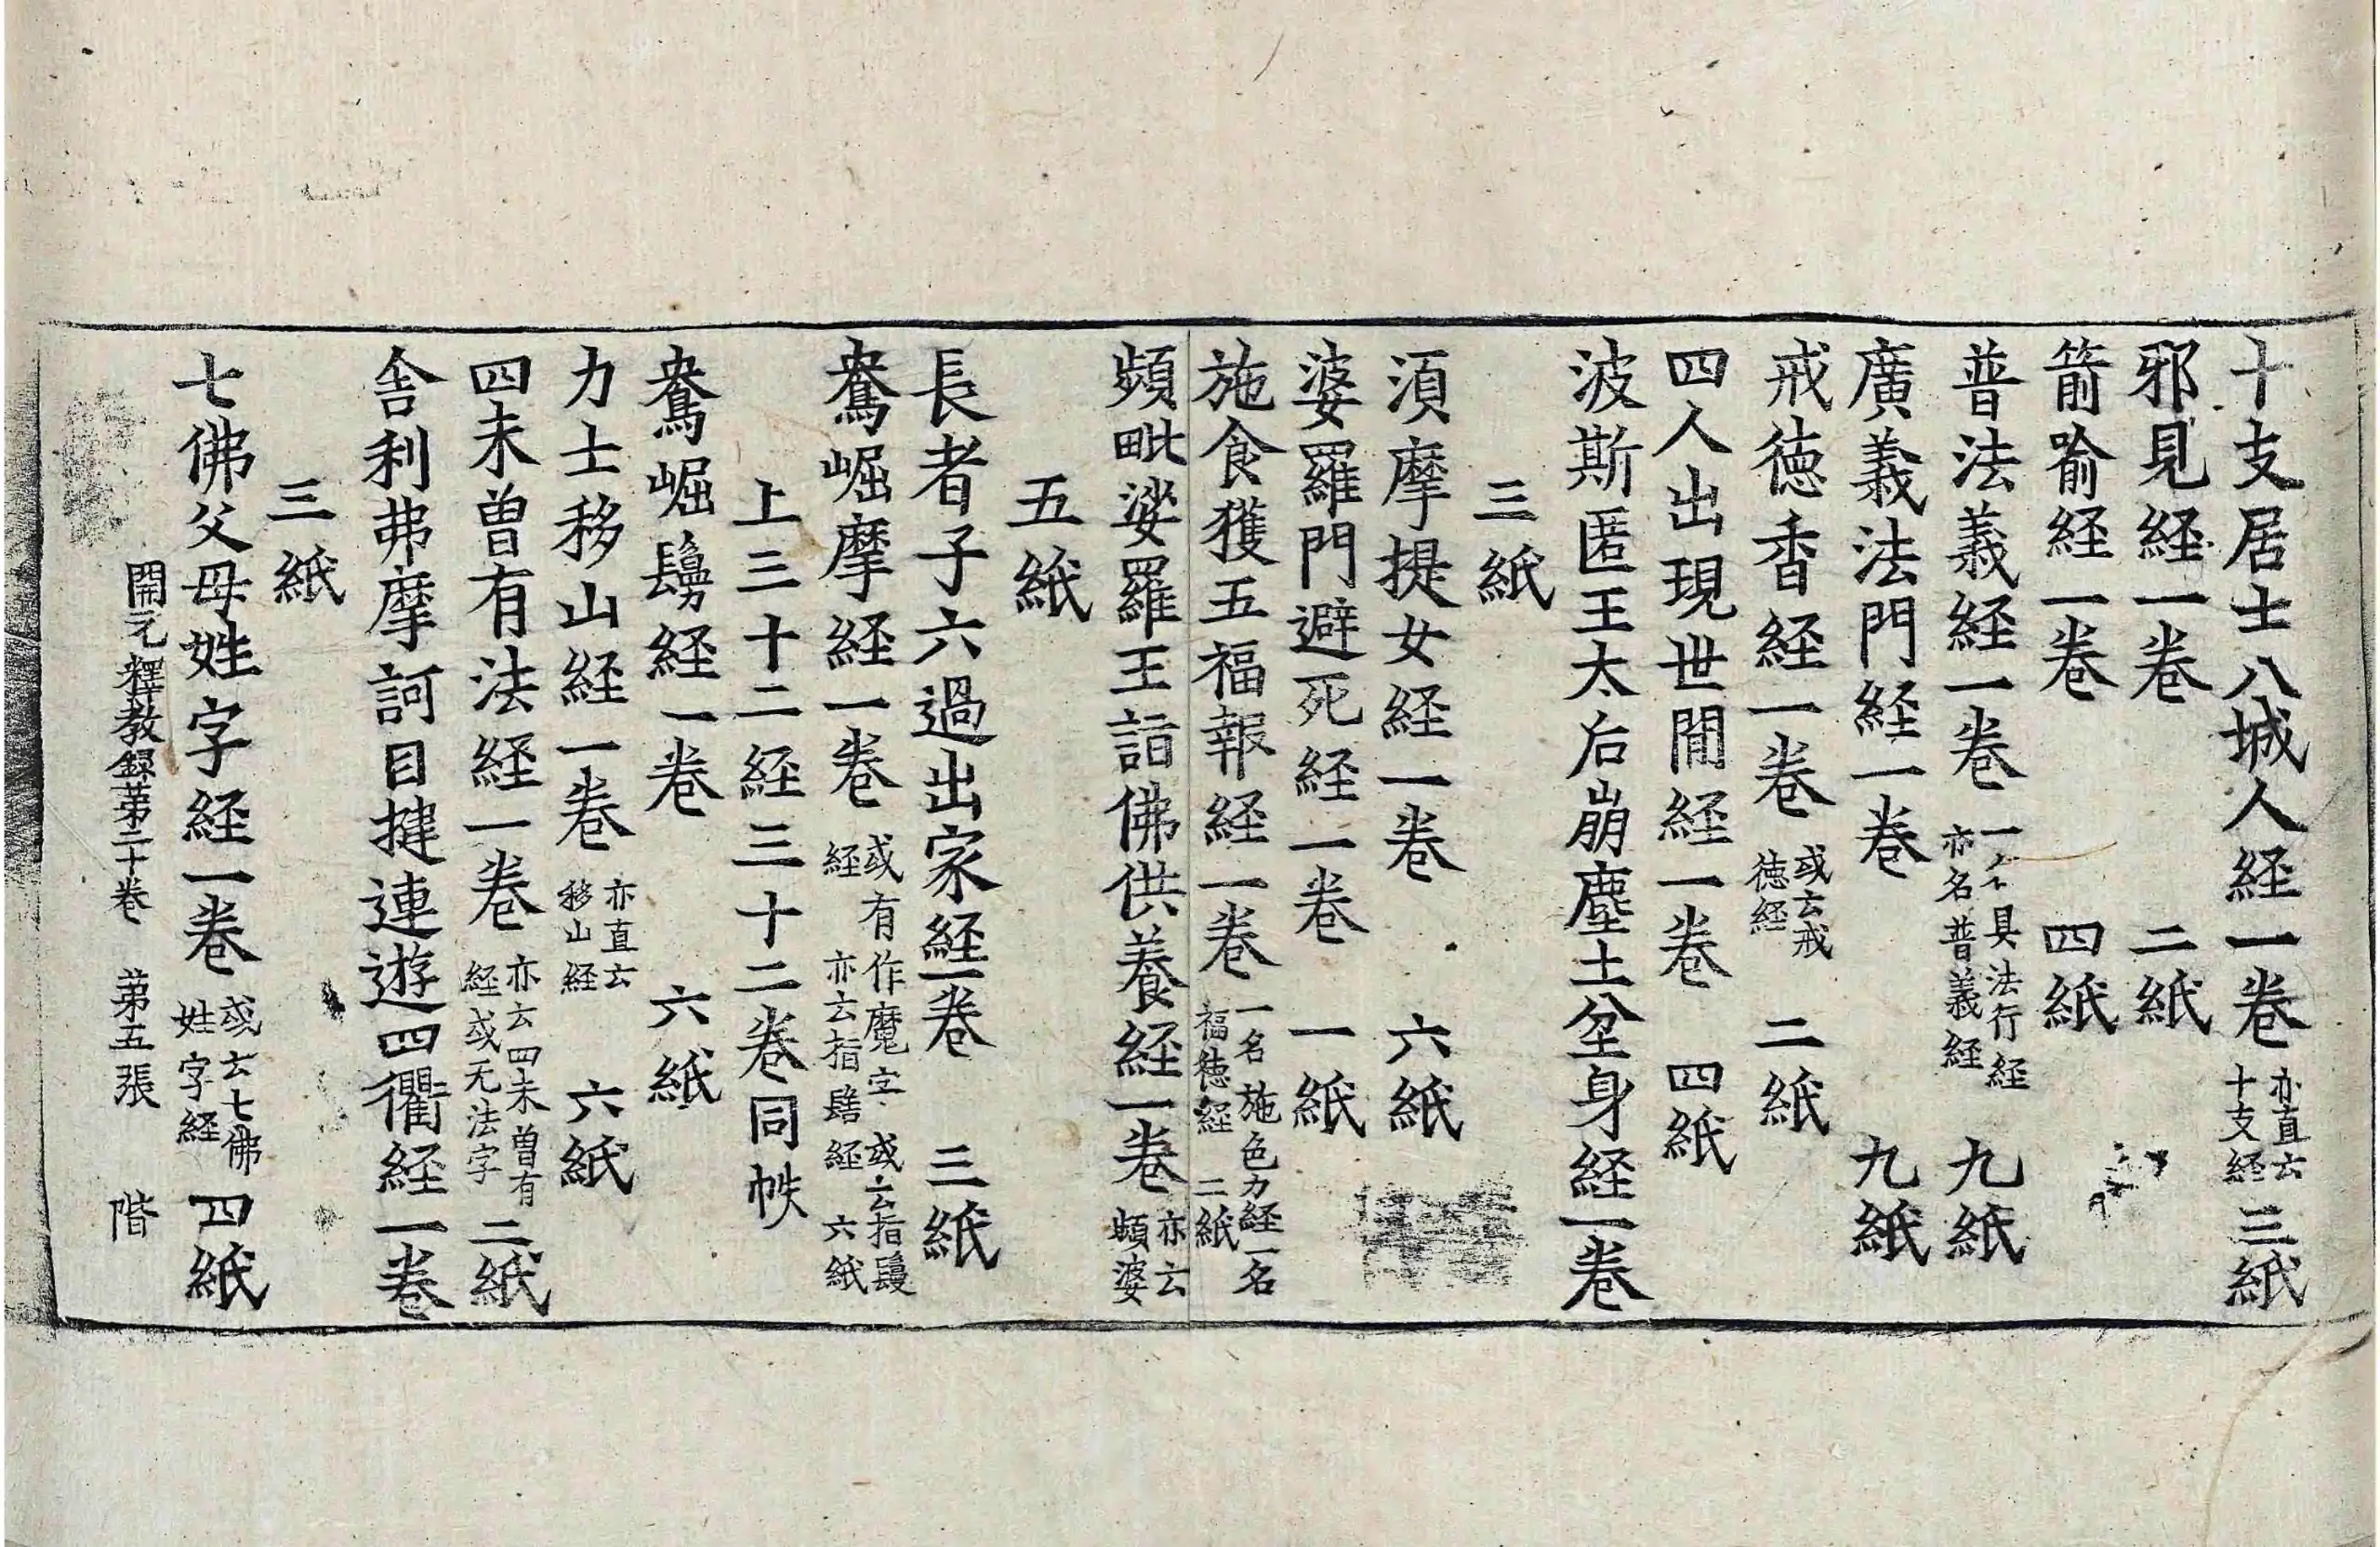 十支居士八城人経一卷 亦直云十支経 三紙
邪見経一卷 二紙
箭喻経一卷 四紙
普法義経一卷 一名具法行経亦名普義経 九紙
廣義法門経一卷 九紙
戒徳香経一卷 或云戒徳経 二紙
四人出現世間経一卷 四紙
波斯匿王太后崩塵土坌身経一卷
三紙
湏摩提女経一卷 六紙
婆羅門避死経一卷 一紙
施食獲五福報経一卷 一名施色力経一名福徳経 二紙
頻毗娑羅王詣佛供養経一卷 亦云頻婆
五紙
長者子六過出家経一卷 三紙
鴦崛摩経一卷 或有作魔字或云指鬘経亦云指髻経 六紙
上三十二経三十二卷同帙
鴦崛髳経一卷 六紙
力士移山経一卷 亦直云移山経 六紙
四未曾有法経一卷 亦云四未曾有経或无法字 二紙
舎利弗摩訶目揵連遊四衢経一卷
三紙
七佛父母姓字経一卷 或云七佛姓字経 四紙
開元釋教錄苐二十卷 苐五張 階